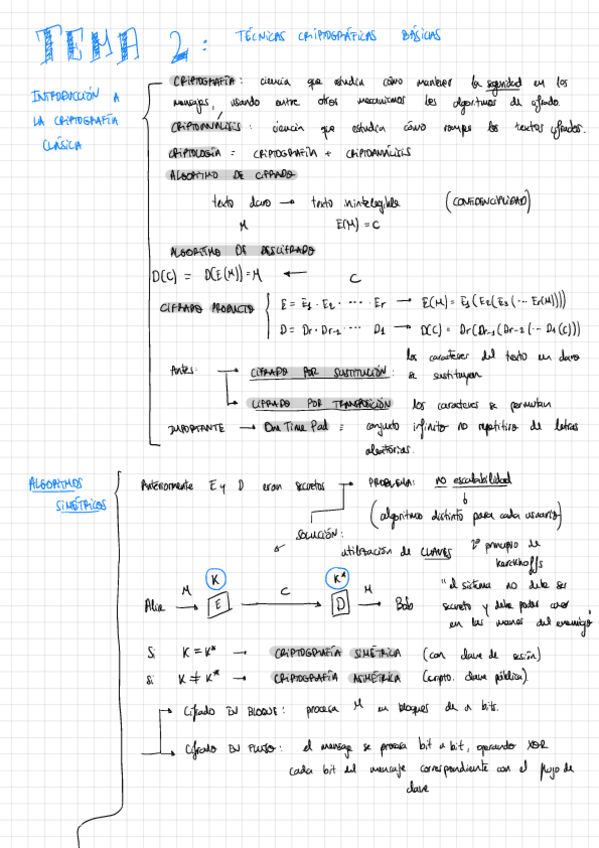 TEMA 2: TÉCNICAS CRIPTOGRÁFICAS BÁSICAS
INTRODUCCIÓN A
LA CRIPTOGRAFÍA
CLÁSICA
CRIPTOGRAFÍA: ciencia que estudia cómo mantener la seguridad en los
mensajes, usando entre otros mecanismos los algoritmos de cifrado.
CRIPTOANÁLISIS: ciencia que estudia cómo romper los textos cifrados.
CRIPTOLOGÍA = CRIPTOGRAFÍA + CRIPTOANÁLISIS
ALGORITMO DE CIFRADO
texto claro → texto ininteligible (CONFIDENCIALIDAD)
M E(M) = C
ALGORITMO DE DESCIFRADO
D(C) = D(E(M)) = M ← C
CIFRADO PRODUCTO
E = E1 · E2 · ···· Er → E(M) = E1(E2(E3(··· Er(M))))
D = Dr · Dr-1 ···· D1 → D(C) = Dr(Dr-1(Dr-2(··· D1(C))))
Antes: → CIFRADO POR SUSTITUCIÓN: los caracteres del texto en claro
se sustituyen
→ CIFRADO POR TRANSPOSICIÓN los caracteres se permutan
IMPORTANTE → One Time Pad = conjunto infinito no repetitivo de letras
aleatorias.
ALGORITMOS
SIMÉTRICOS
Anteriormente E y D eran secretos → PROBLEMA: no escalabilidad
(algoritmo distinto para cada usuario)
SOLUCIÓN:
utilización de CLAVES
2º principio de
kerckhoffs
"el sistema no debe ser
secreto y debe poder caer
en las manos del enemigo"
K K*
Alice M → E C → D M → Bob
Si K = K* → CRIPTOGRAFÍA SIMÉTRICA (con clave de sesión)
Si K ≠ K* → CRIPTOGRAFÍA ASIMÉTRICA (cripto. clave pública).
→ Cifrado EN BLOQUE: procesa M en bloques de n bits.
→ Cifrado EN FLUJO: el mensaje se procesa bit a bit, operando XOR
cada bit del mensaje correspondiente con el flujo de
clave